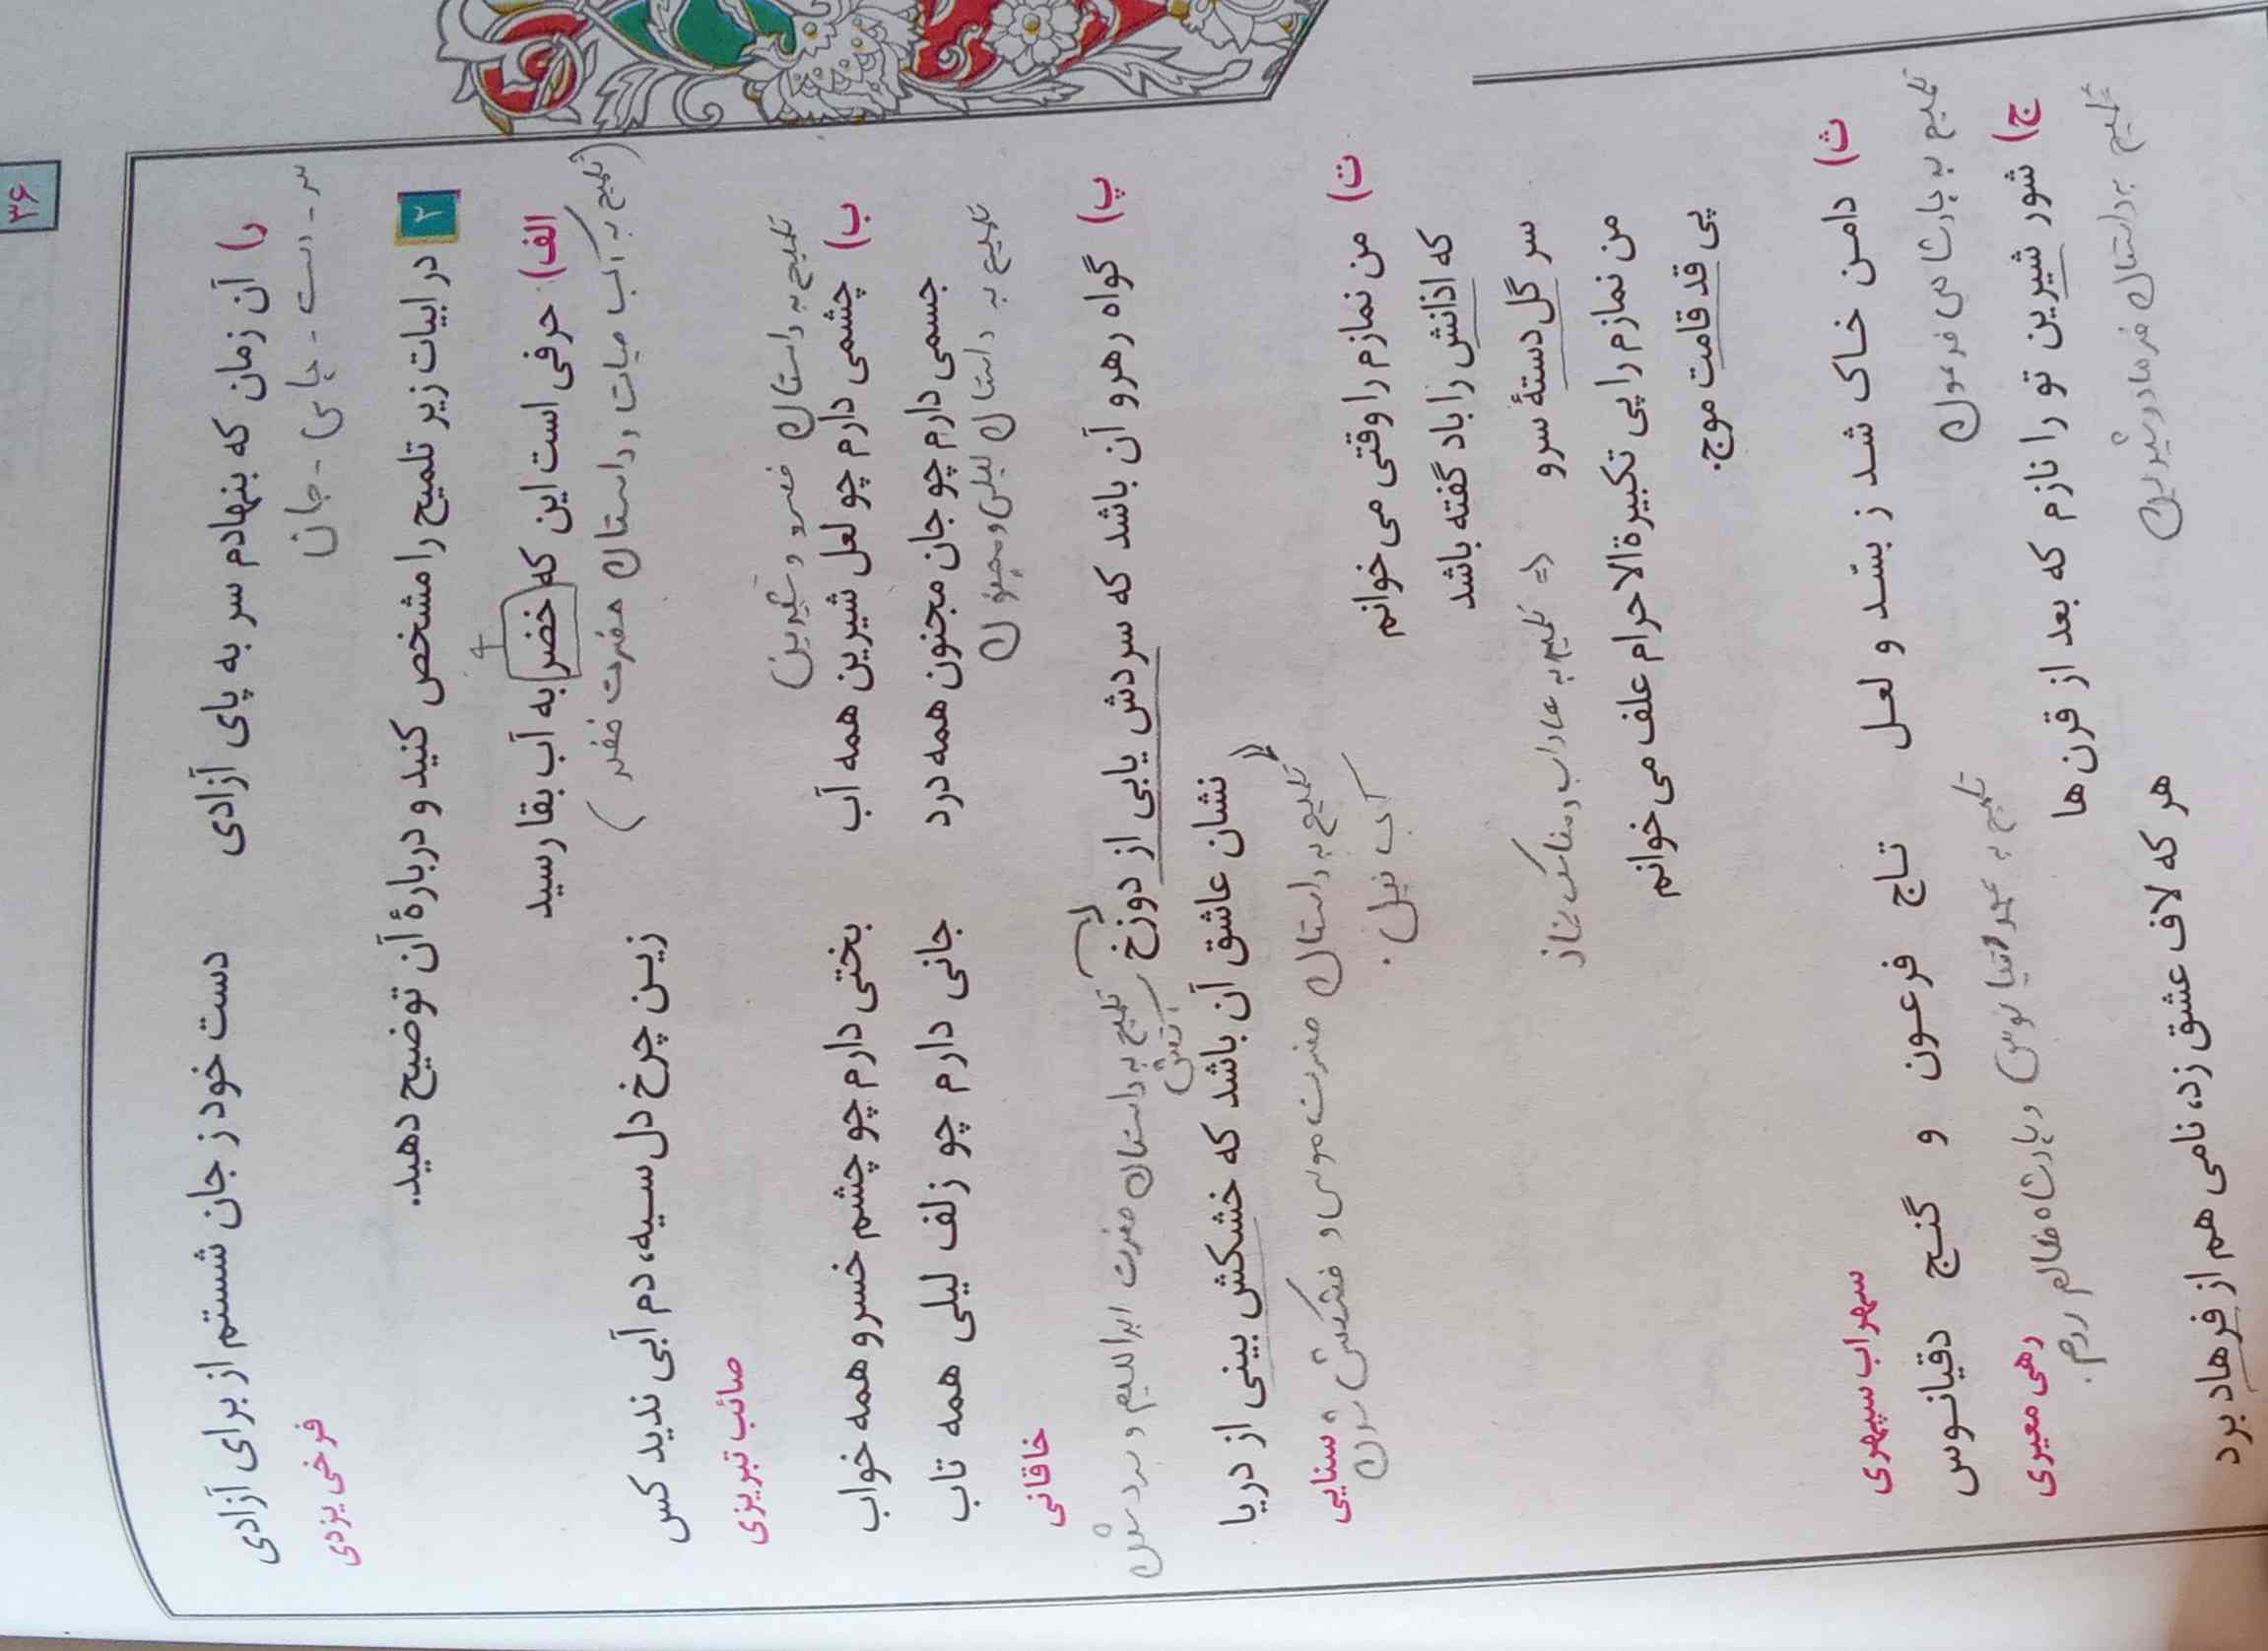 ۳۶
د) آن زمان که بنهادم سر به پای آزادی    دست خود ز جان شستم از برای آزادی
سر - دست - جای - جان
فرخی یزدی
۲ در ابیات زیر تلمیح را مشخص کنید و دربارهٔ آن توضیح دهید.
الف) حرفی است این که خضر به آب بقا رسید    زین چرخ دل سیه، دم آبی ندید کس
(تلمیح به آب حیات و داستان حضرت خضر)
صائب تبریزی
تلمیح به داستان خسرو و شیرین)
ب) چشمی دارم چو لعل شیرین همه آب    بختی دارم چو چشم خسرو همه خواب
جسمی دارم چو جان مجنون همه درد    جانی دارم چو زلف لیلی همه تاب
تلمیح به داستان لیلی و مجنون
خاقانی
پ) گواه رهرو آن باشد که سردش یابی از دوزخ
تلمیح به داستان حضرت ابراهیم و سرد شدن
آتش
نشان عاشق آن باشد که خشکش بینی از دریا
تلمیح به داستان حضرت موسی و خشکش شدن
آب نیل.
سنایی
ت) من نمازم را وقتی می خوانم
که اذانش را باد گفته باشد
سر گل دستهٔ سرو
تلمیح به
نماز
من نمازم را پی تکبیرة الاحرام علف می خوانم
پی قد قامت موج.
سهراب سپهری
ث) دامن خاک شد ز بسّد و لعل    تاج فرعون و گنج دقیانوس
تلمیح به پادشاهی فرعون
تلمیح به
دقیانوس و پادشاه ظالم روم.
رهی معیری
ج) شور شیرین تو را نازم که بعد از قرن ها    هر که لاف عشق زد، نامی هم از فرهاد برد
تلمیح به داستان فرهاد و شیرین